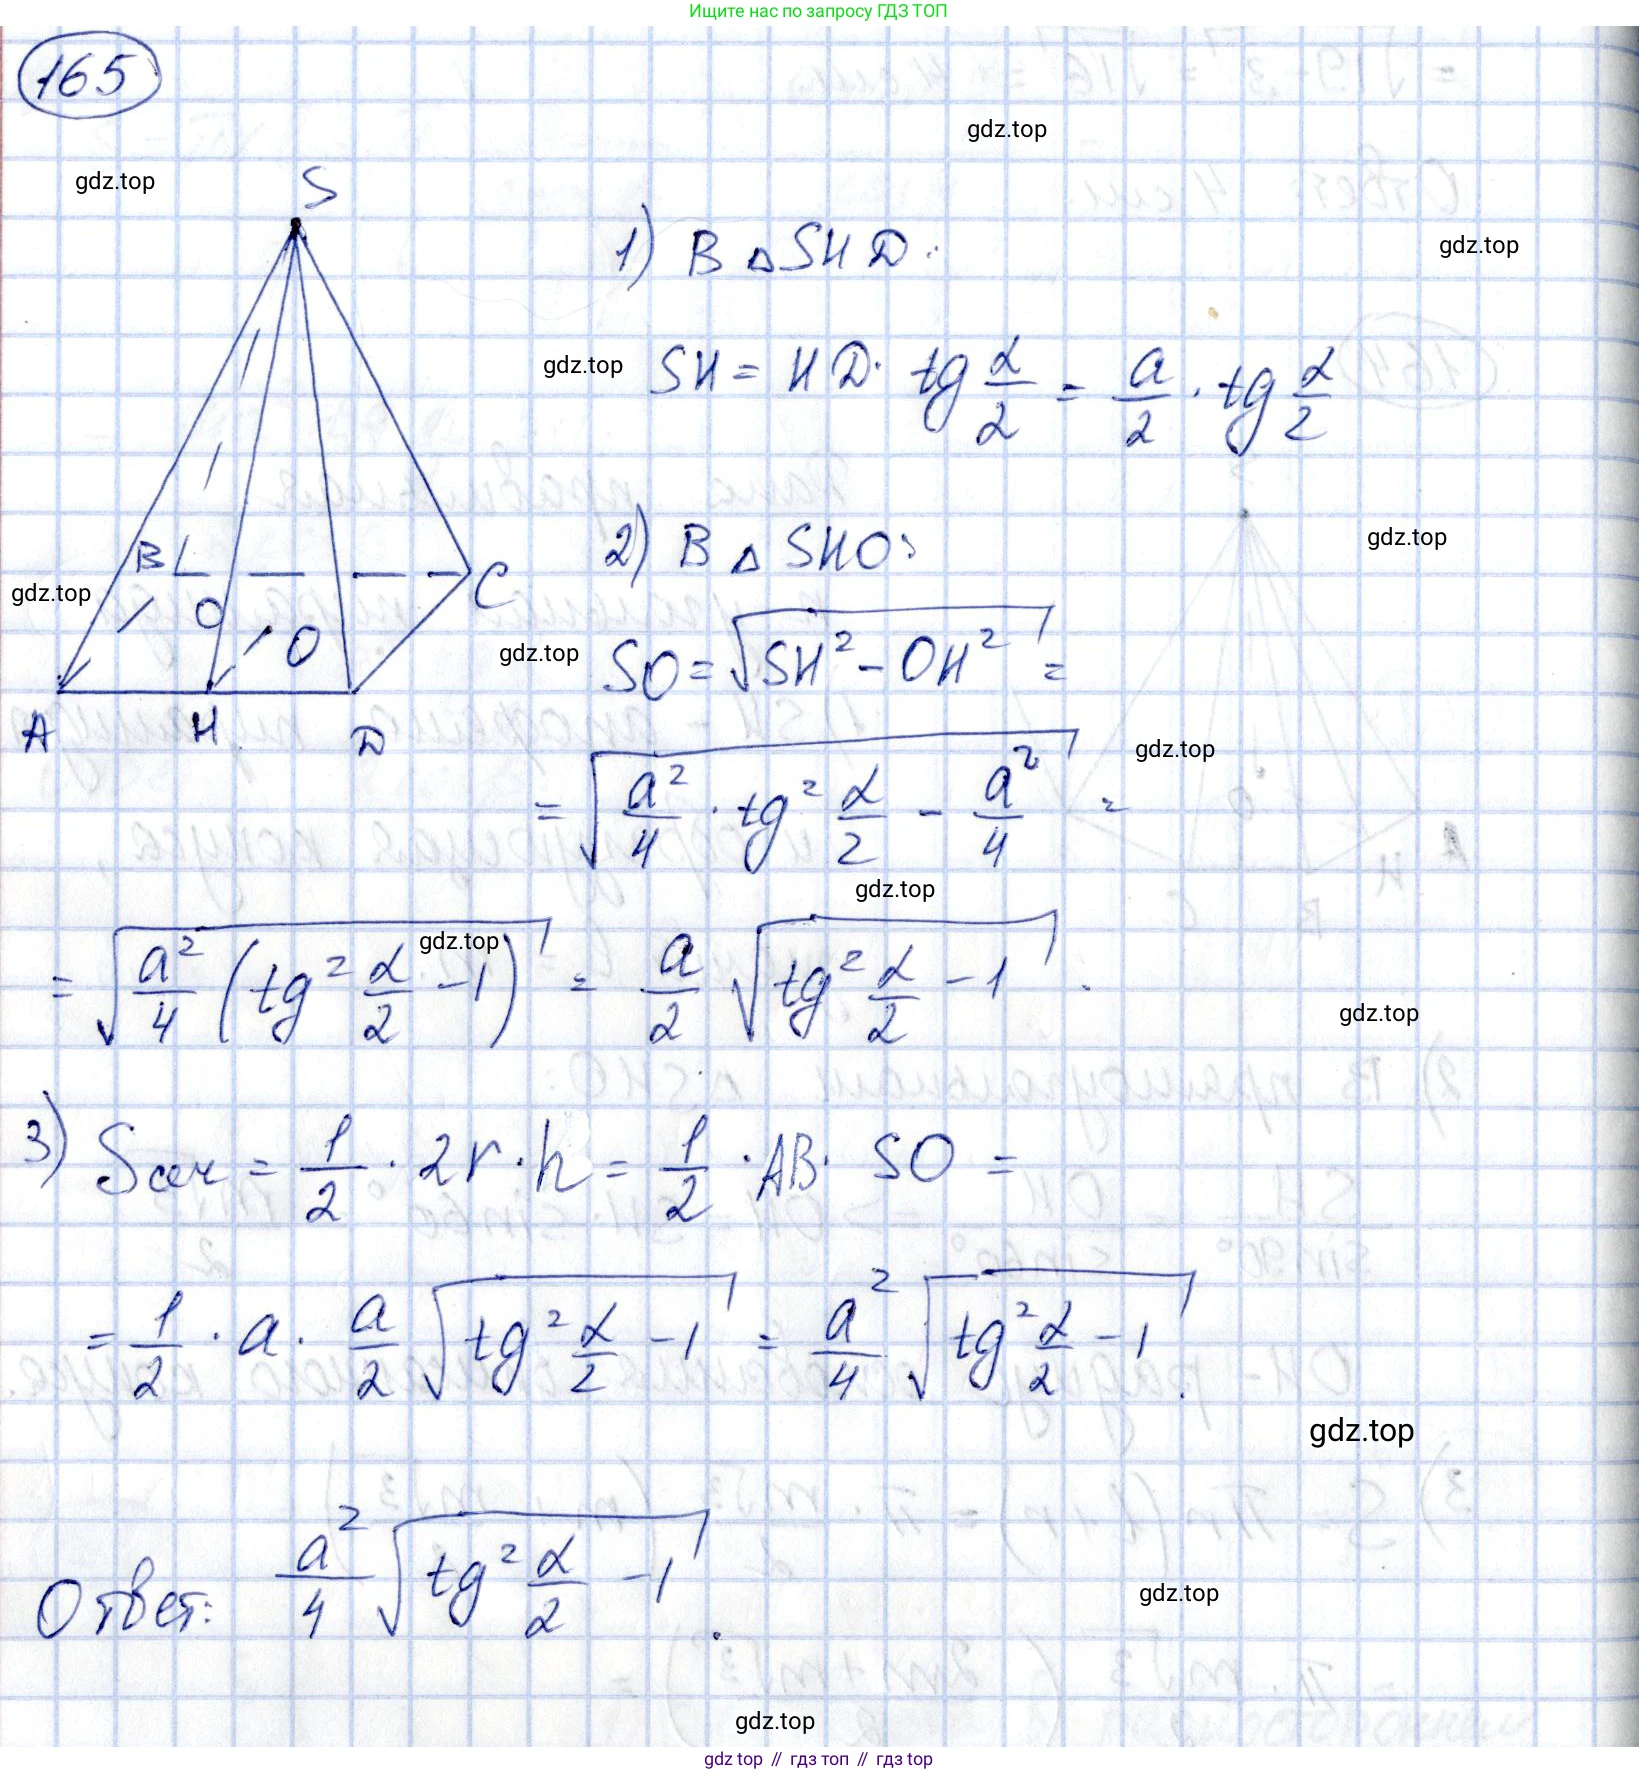 Ищите нас по запросу ГДЗ ТОП
165
gdz.top
gdz.top
S
1) В △SHD:
gdz.top
SH = HD · tg α/2 = a/2 · tg α/2
gdz.top
2) В △SHO:
gdz.top
B
C
gdz.top
O
gdz.top
SO = √(SH² − OH²) =
A H D
gdz.top
= √(a²/4 · tg² α/2 − a²/4) =
gdz.top
gdz.top
= √(a²/4 (tg² α/2 − 1)) = a/2 √(tg² α/2 − 1)
gdz.top
3) Sсеч = 1/2 · 2r · h = 1/2 · AB · SO =
= 1/2 · a · a/2 √(tg² α/2 − 1) = a²/4 √(tg² α/2 − 1).
gdz.top
Ответ: a²/4 √(tg² α/2 − 1).
gdz.top
gdz.top
gdz top // гдз топ // гдз top